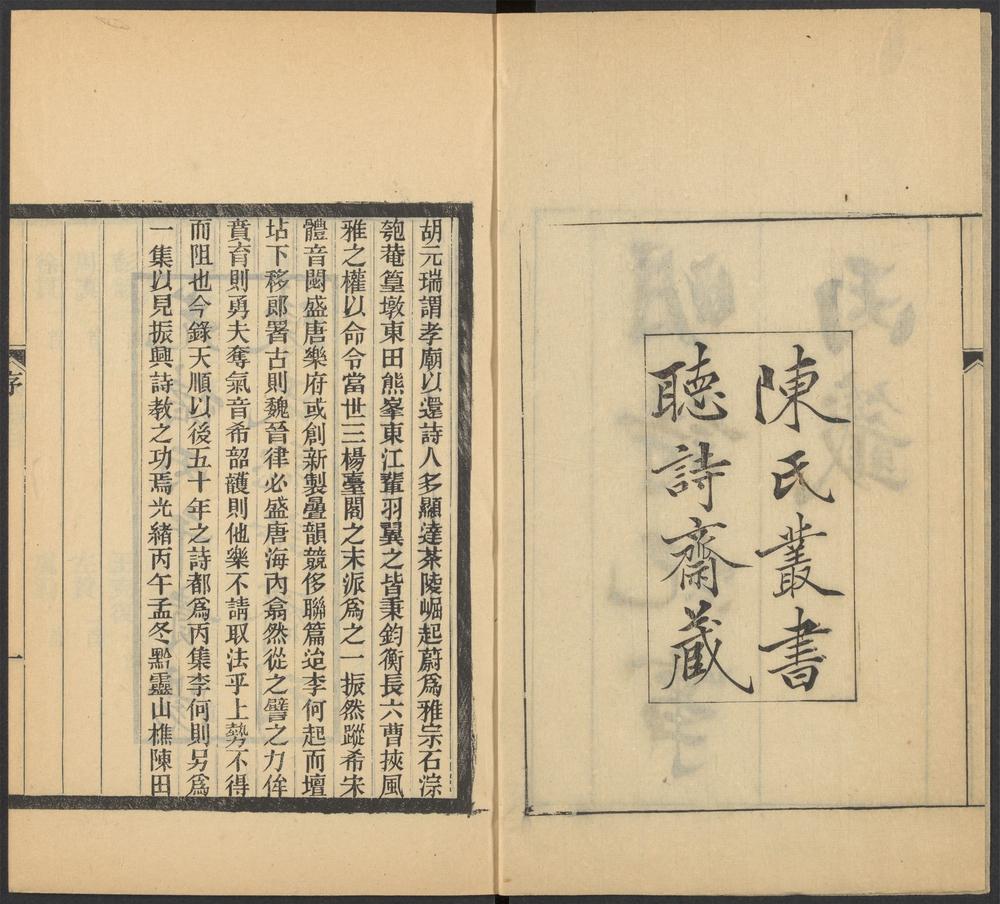 陳氏叢書
聽詩齋藏
胡元瑞謂孝廟以還詩人多顯達茶陵崛起蔚爲雅宗石淙
匏菴篁墩東田熊峯東江輩羽翼之皆秉鈞衡長六曹挾風
雅之權以命令當世三楊臺閣之末派爲之一振然蹤希宋
體音闋盛唐樂府或創新製疊韻競侈聯篇迨李何起而壇
坫下移郎署古則魏晉律必盛唐海內翕然從之譬之力侔
賁育則勇夫奪氣音希韶頀則他樂不請取法乎上勢不得
而阻也今錄天順以後五十年之詩都爲丙集李何則另爲
一集以見振興詩教之功焉光緒丙午孟冬黔靈山樵陳田
序
一